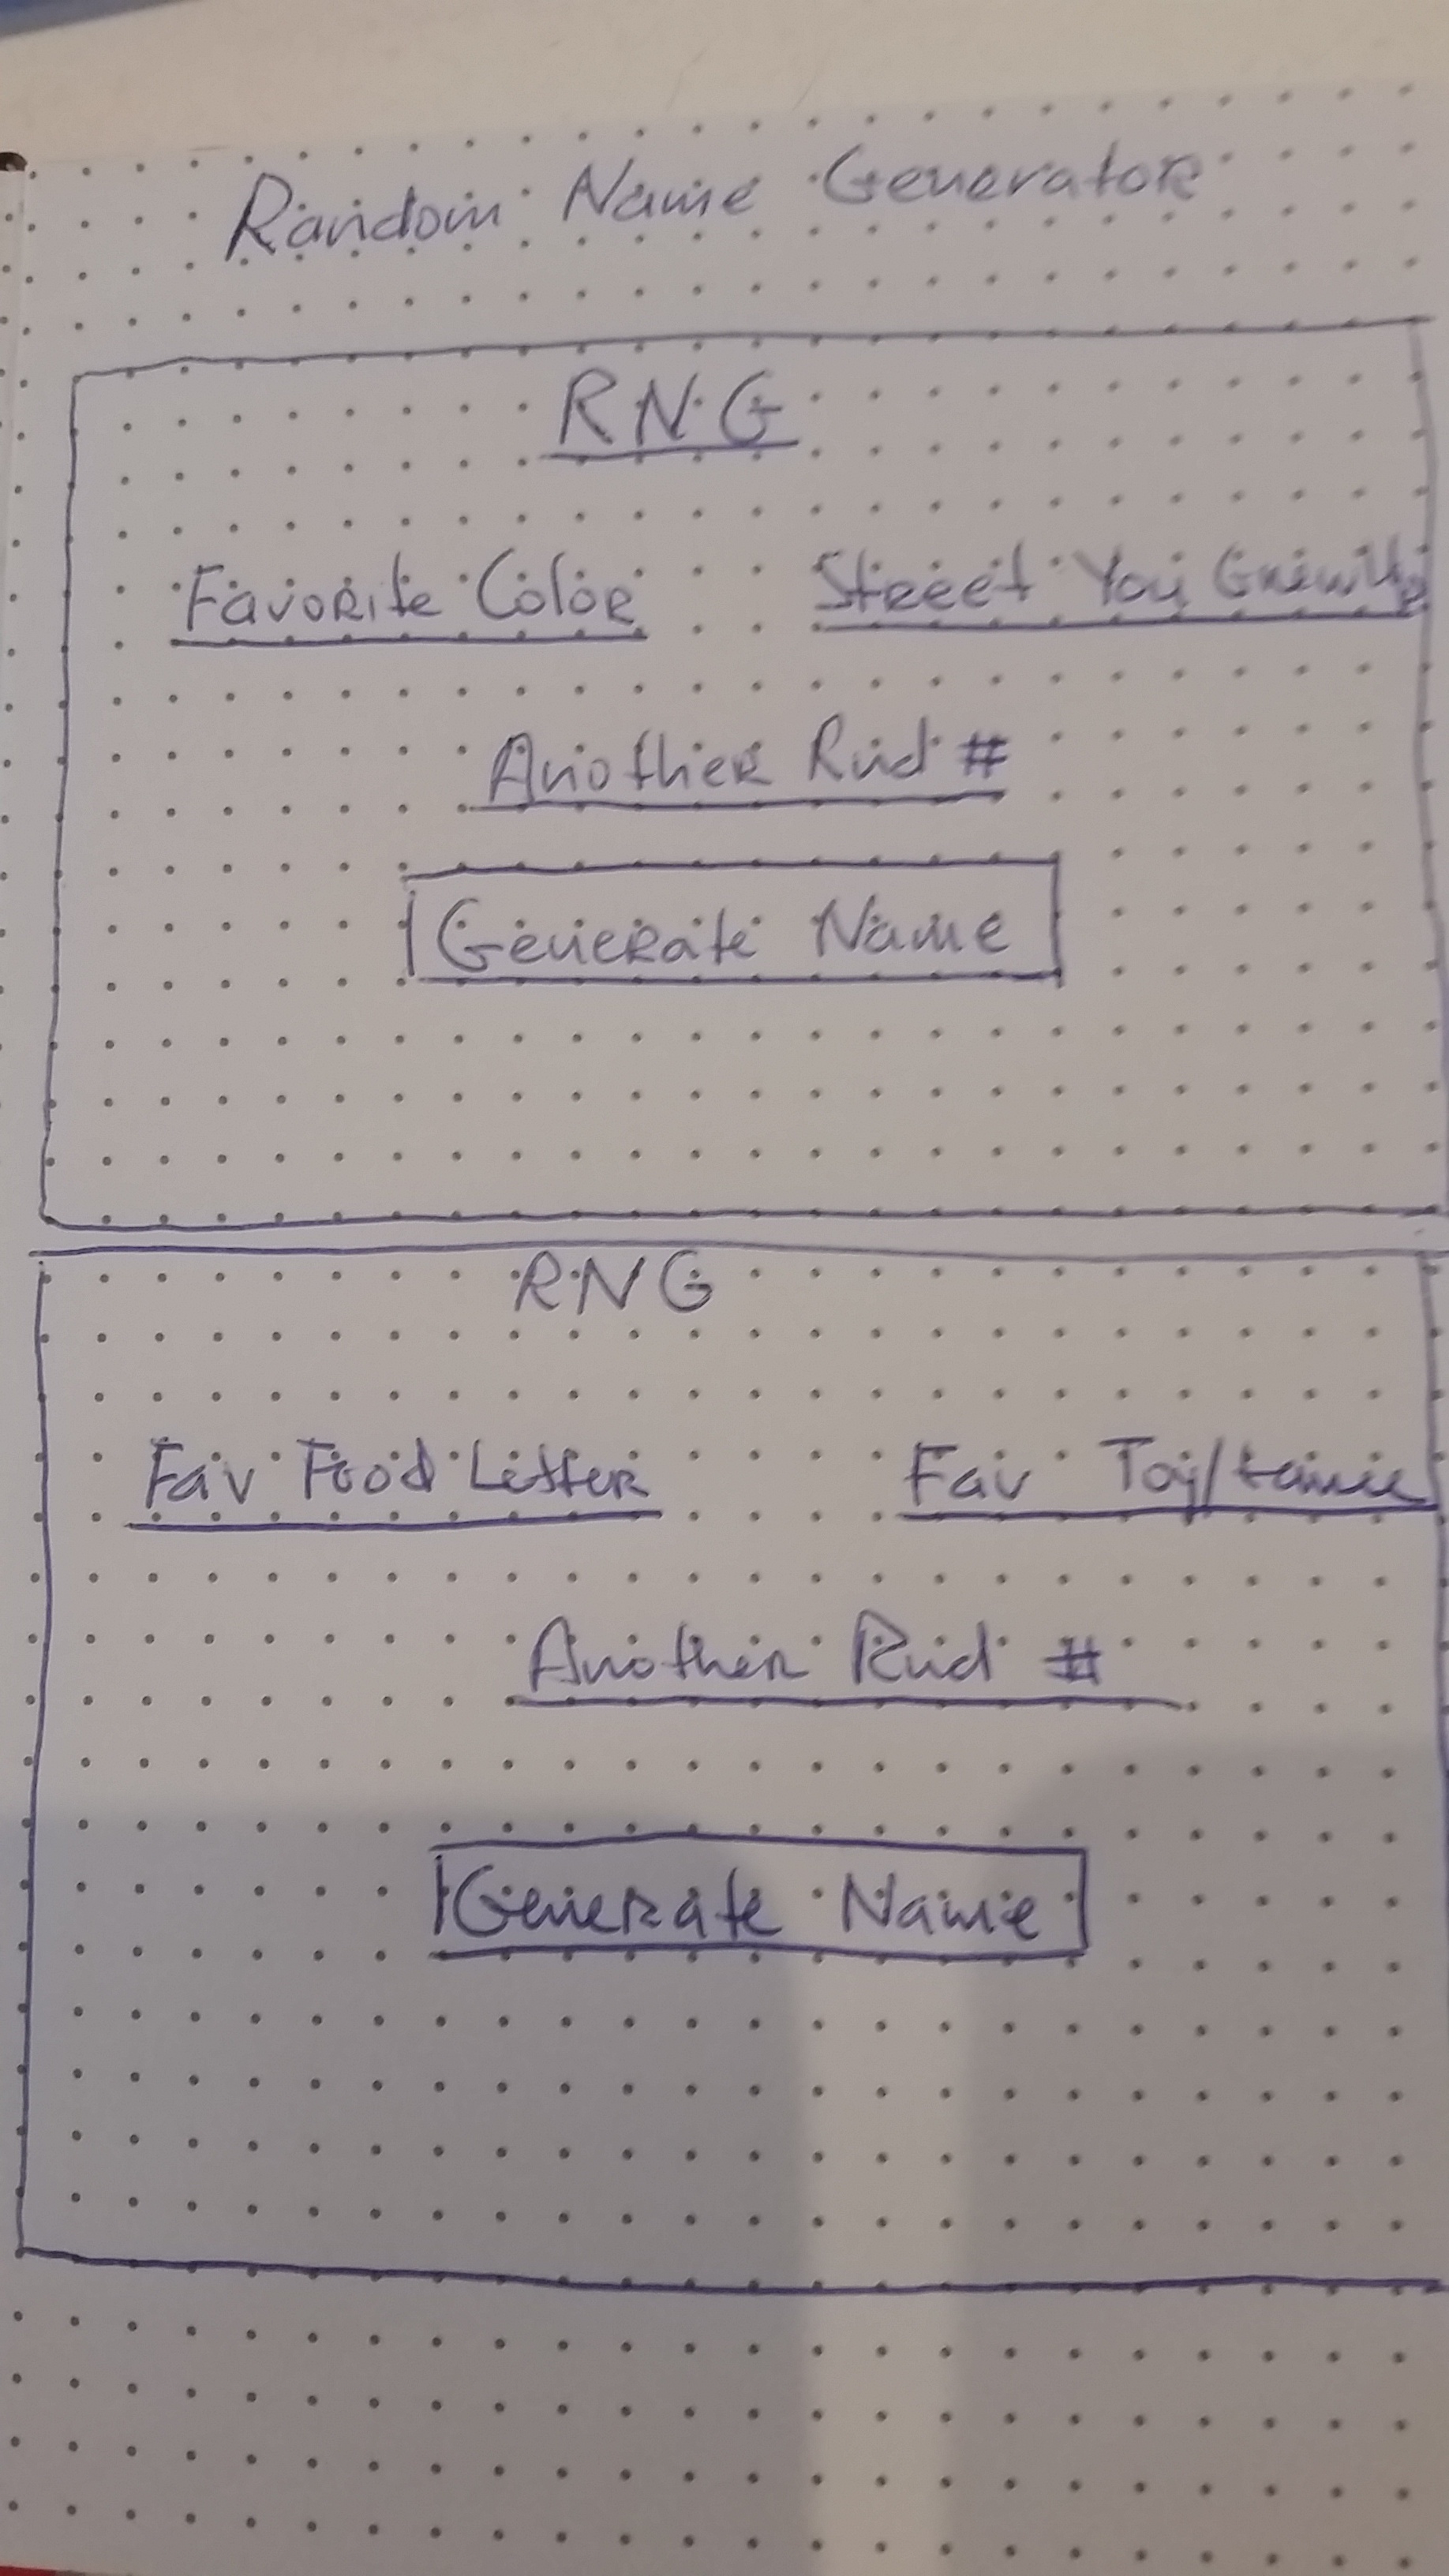 Random Name Generator
RNG
Favorite Color Street You Grew Up
Another Rnd #
Generate Name
RNG
Fav Food Letter Fav Toy/
Another Rnd #
Generate Name